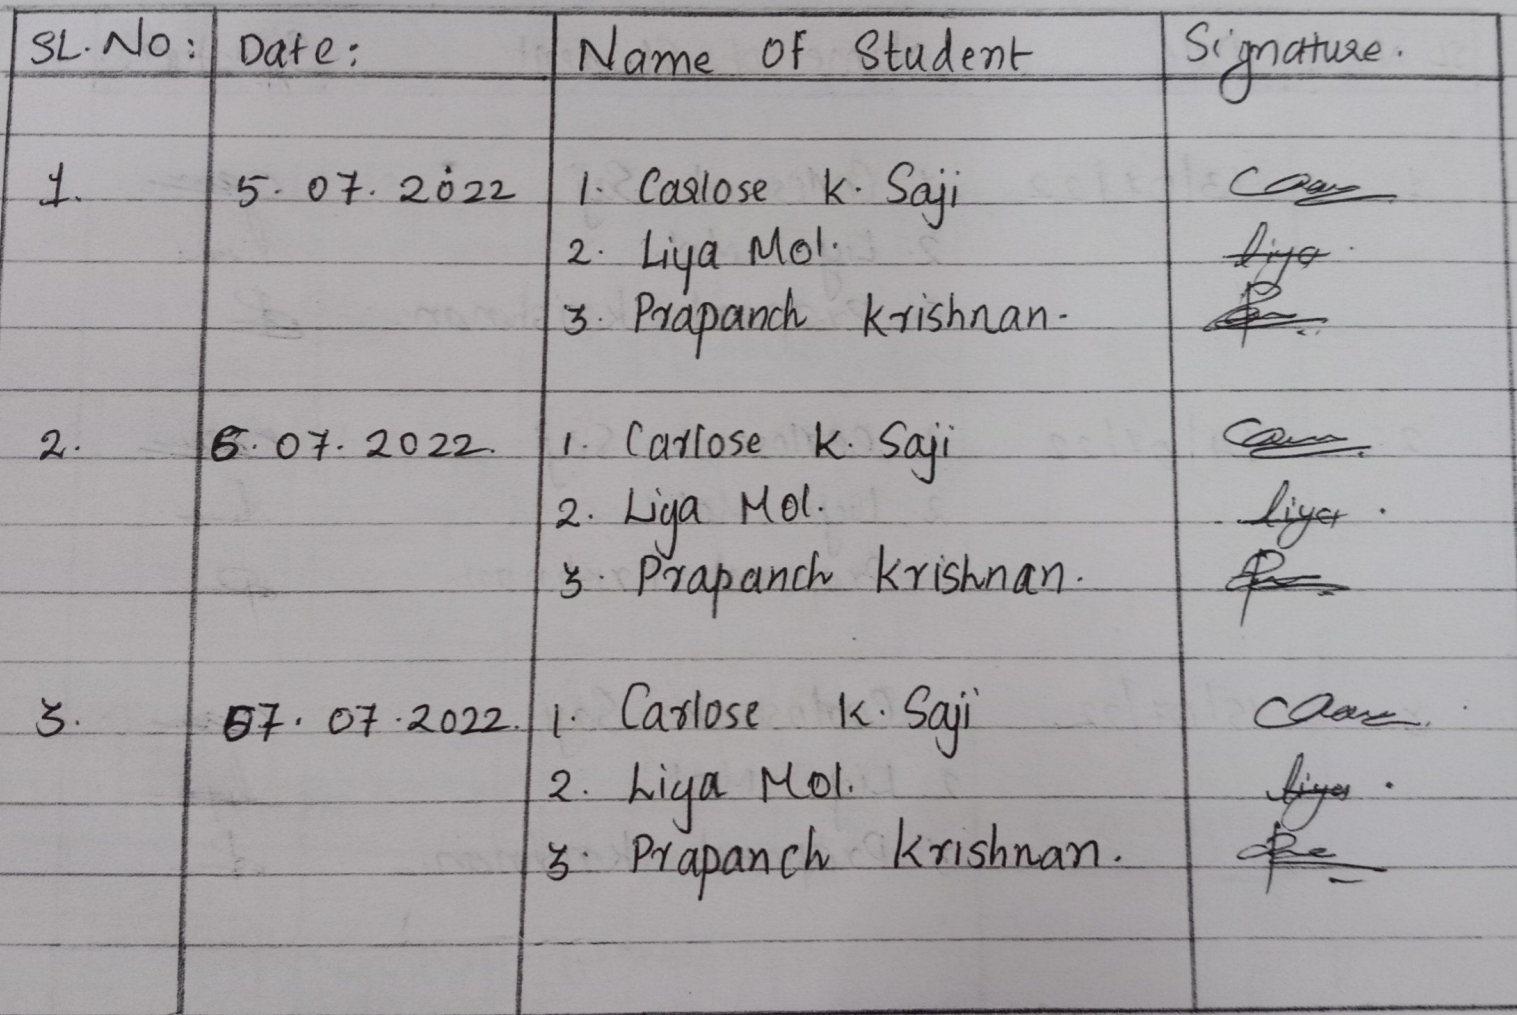 SL. No: Date: Name Of Student Signature.
1. 5. 07. 2022 1. Carlose K. Saji
2. Liya Mol. Liya
3. Prapanch Krishnan.
2. 6. 07. 2022. 1. Carlose K. Saji
2. Liya Mol. Liya.
3. Prapanch Krishnan.
3. 07. 07. 2022. 1. Carlose K. Saji
2. Liya Mol. Liya.
3. Prapanch Krishnan.